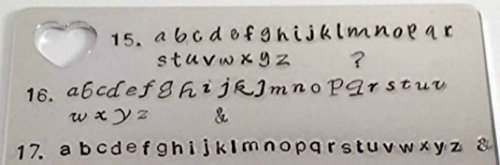 15. a b c d e f g h i j k l m n o p q r
s t u v w x y z ?
16. a b c d e f g h i j k l m n o p q r s t u v
w x y z &
17. a b c d e f g h i j k l m n o p q r s t u v w x y z &